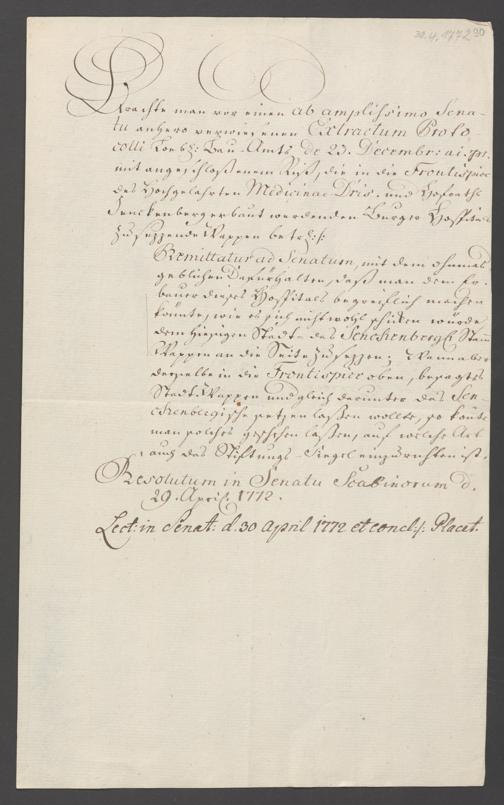 30.4.1772
30
Brachte man vor einen ab amplissimo Sena-
tu anhero verwiesenen Extractum Proto-
colli Löbl: Bau-Amts de 23. Decembr: a. pr.
mit angeschloßenem Riß, die in die Frontispice
des Hochgelahrten Medicinae Dris. und Hofraths
Senckenberg erbaut werdenden Burger Hospitals
zu setzende Wappen betr:
Remittatur ad Senatum, mit dem ohnmas-
geblichen Dafürhalten, daß man dem Er-
bauer dieses Hospitals begreiflich machen
könnte, wie es sich nicht wohl schicken würde
dem hiesigen Stadt- das Senckenbergl. Stamm
Wappen an die Seite zu setzen; Wann aber
derselbe in die Frontispice oben, besagtes
Stadt Wappen und gleich darunter das Sen-
ckenbergische setzen lassen wollte, so könte
man solches geschehen lassen, auf welche Art
auch das Stiftungs-Siegel einzurichten ist.
Resolutum in Senatu Scabinorum d.
29. April. 1772.
Lect: in Senat: d. 30 April 1772 et concl: Placet.